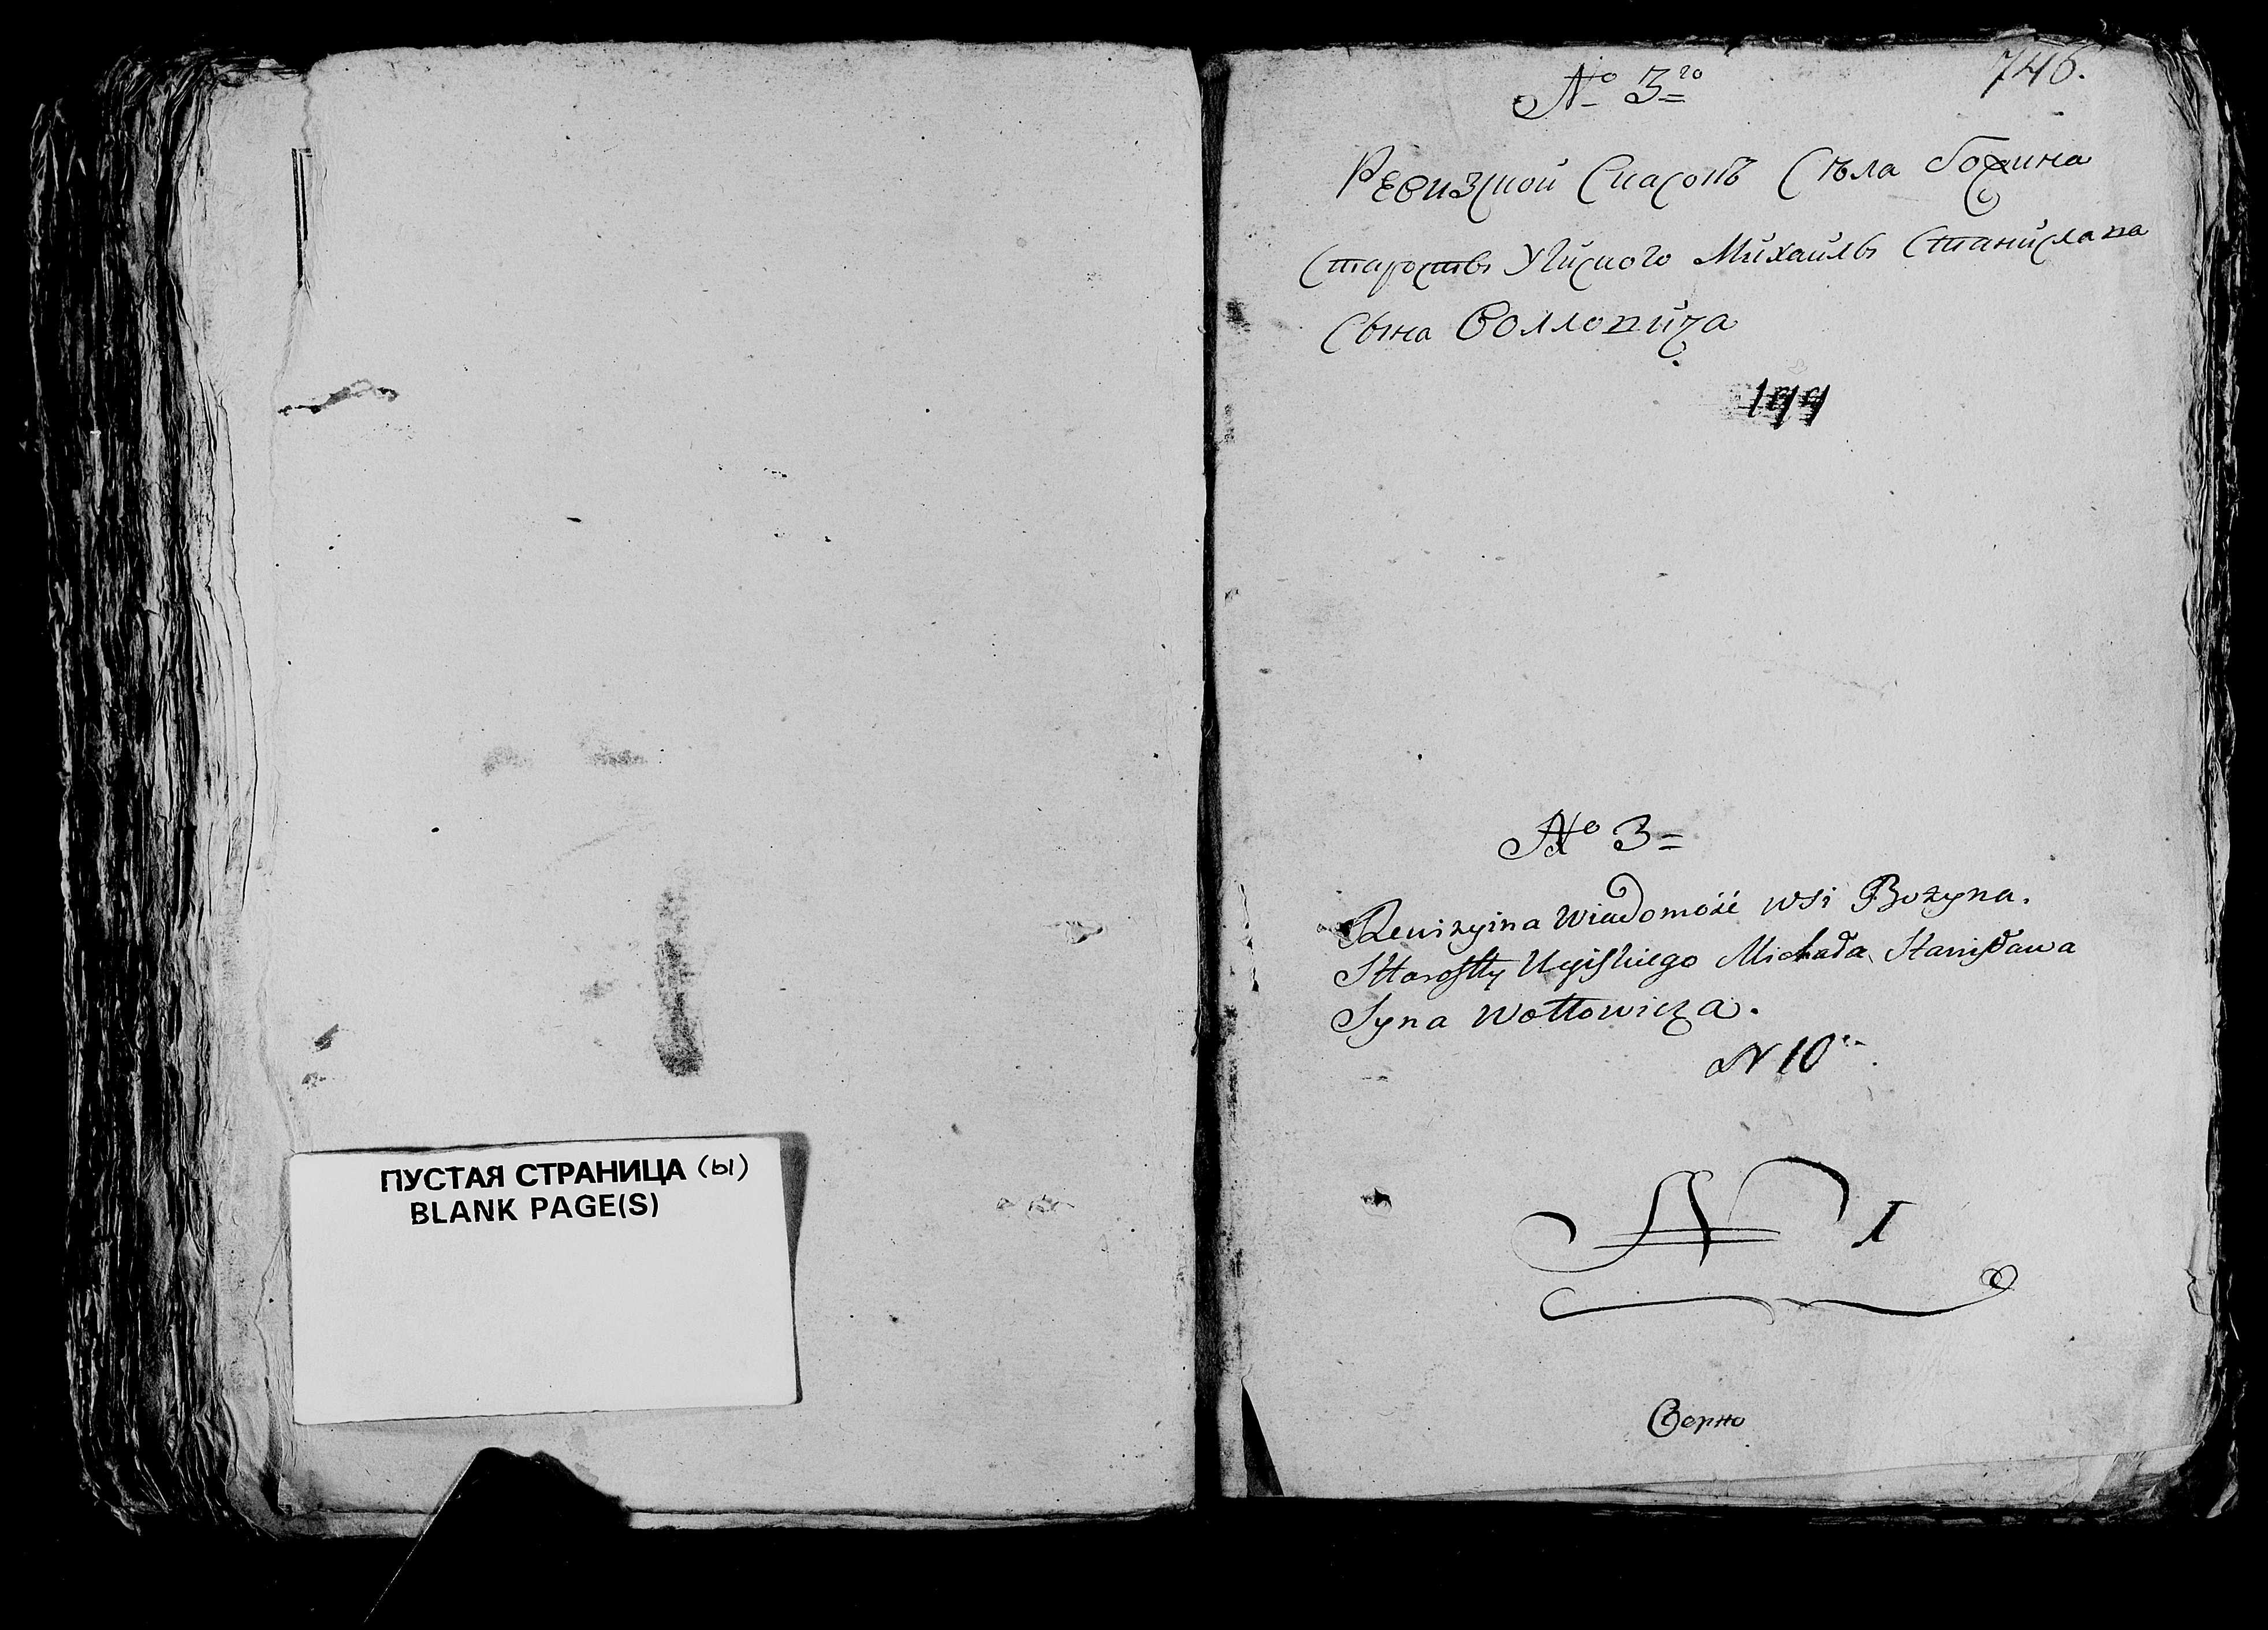 ПУСТАЯ СТРАНИЦА (ы)
BLANK PAGE(S)
746.
№ 3го
Ревизкой Скасокъ Сѣла Божина
Старосты Угиского Михаилы Станислава
Сына Волловича
№ 3
Rewizyina Wiadomość wsi Bożyna.
Starosty Ugiskiego Michała Stanisława
Syna Wołłowicza.
N 10
№ I
Верно